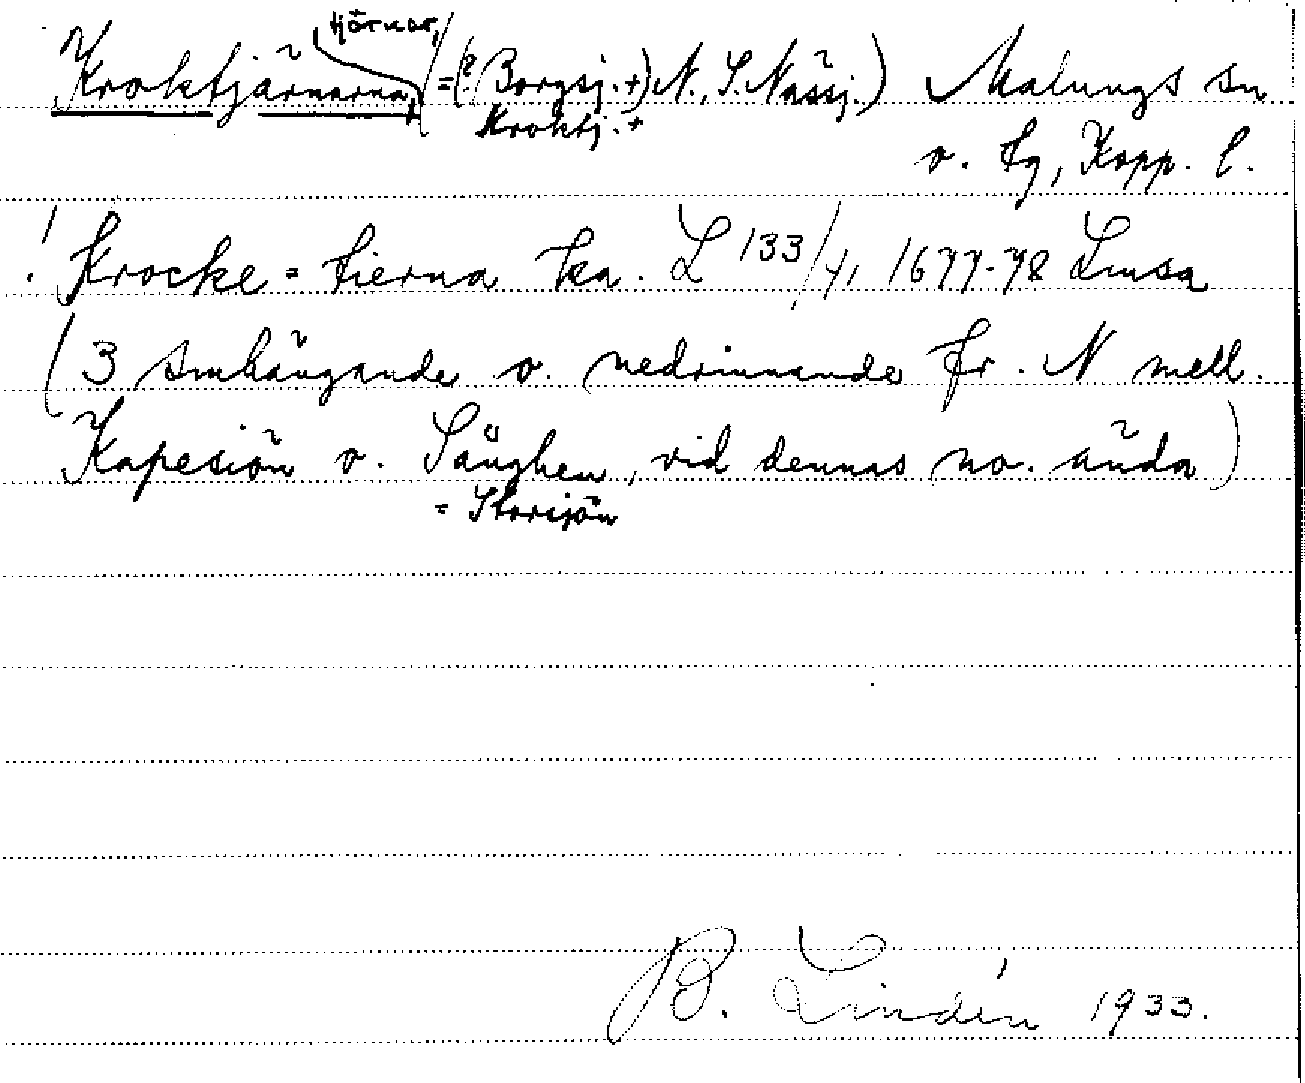 tjärnar,
Kroktjärnarna, =(? Borgsj. +) N., S. Nässj.) Malungs sn
Kroktj. +
o. tg, Kopp. l.
! Krocke = tierna ka. L 133/41 1677-78 Limsa
(3 smhängande o. nedrinnande fr. N mell.
Kapesiön o. Sänghen, vid dennas no. ända)
= Storsjön
B. Lindén 1933.